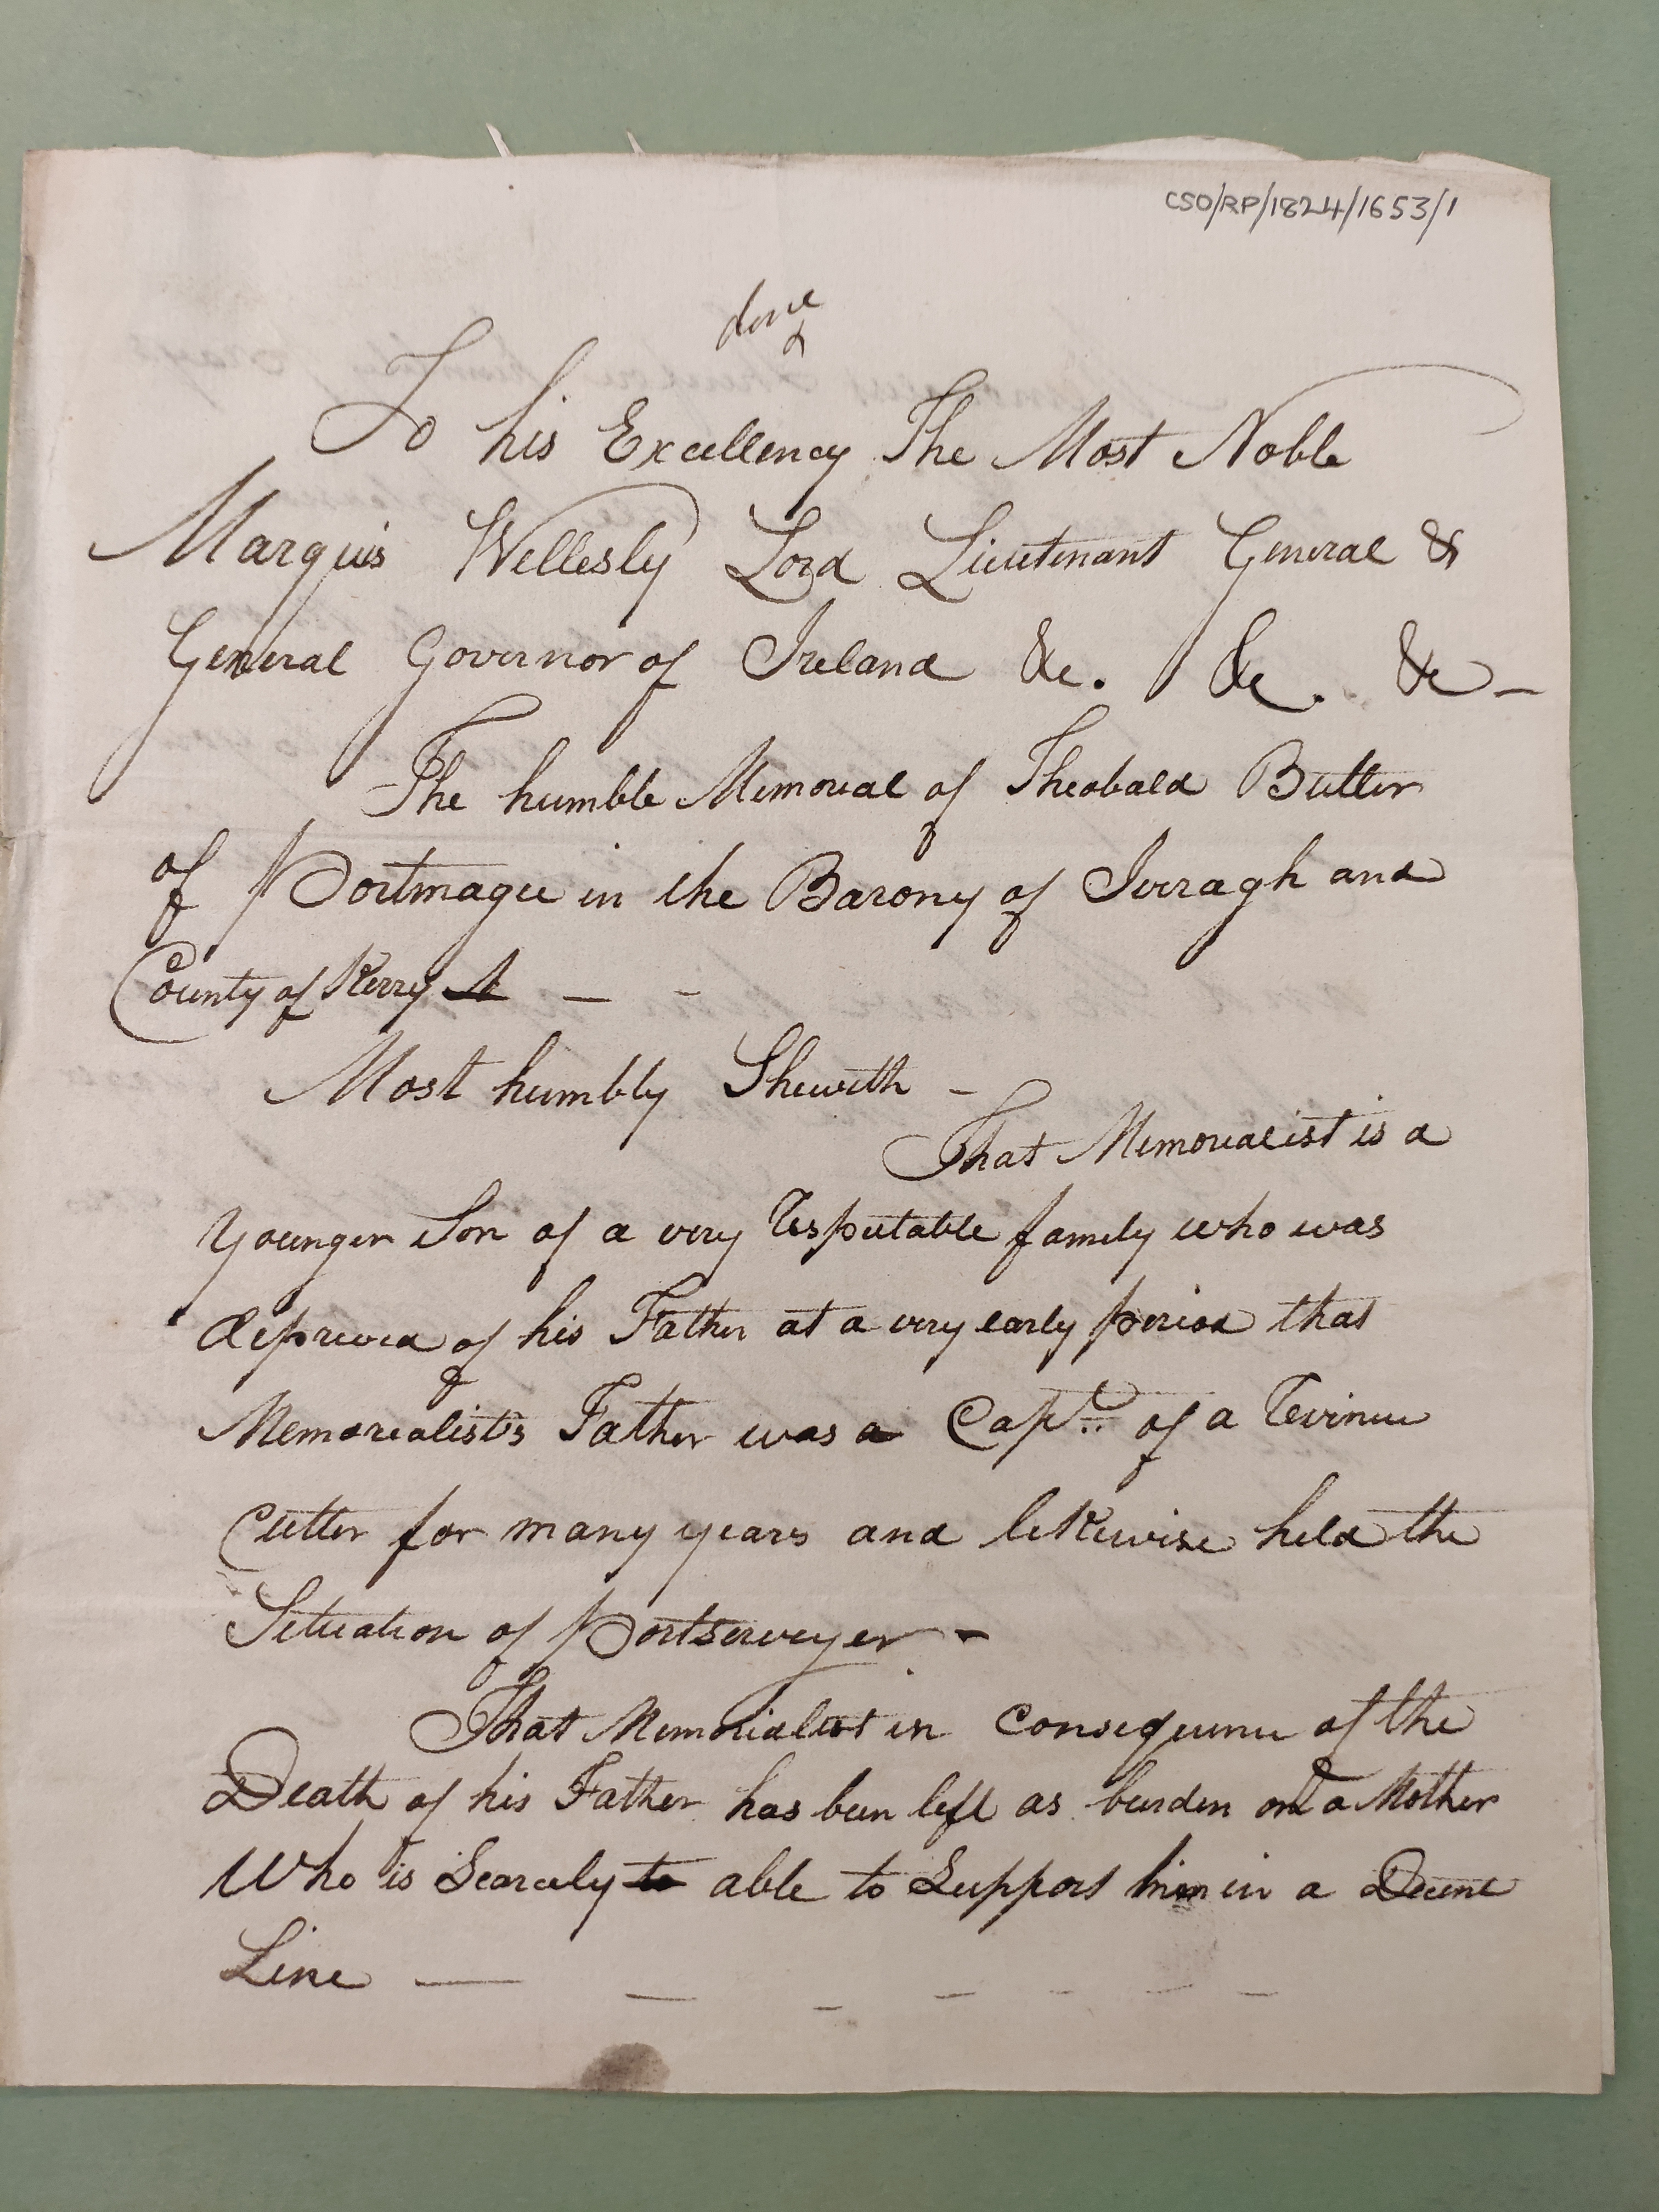 CSO/RP/1824/1653/1
done
To his Excellency The Most Noble
Marquis Wellesly Lord Lieutenant General &
General Governor of Ireland &c. &c. &c -
The humble Memorial of Theobald Butler
of Portmagee in the Barony of Iveragh and
County of Kerry — -
Most humbly Sheweth -
That Memorialist is a
Younger Son of a very respectable family who was
deprived of his Father at a very early period that
Memorealist's Father was a Capt. of a revenue
Cutter for many years and likewise held the
Situation of Portserveyer -
That Memorialist in consequence of the
Death of his Father has been left as burden on a Mother
Who is Scarcely to able to Support him in a Decent
Line — — - - - - -